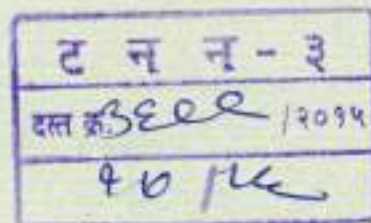 ट न न - ३
दस्त क्र. ३६९९ /२०१५
१७ /